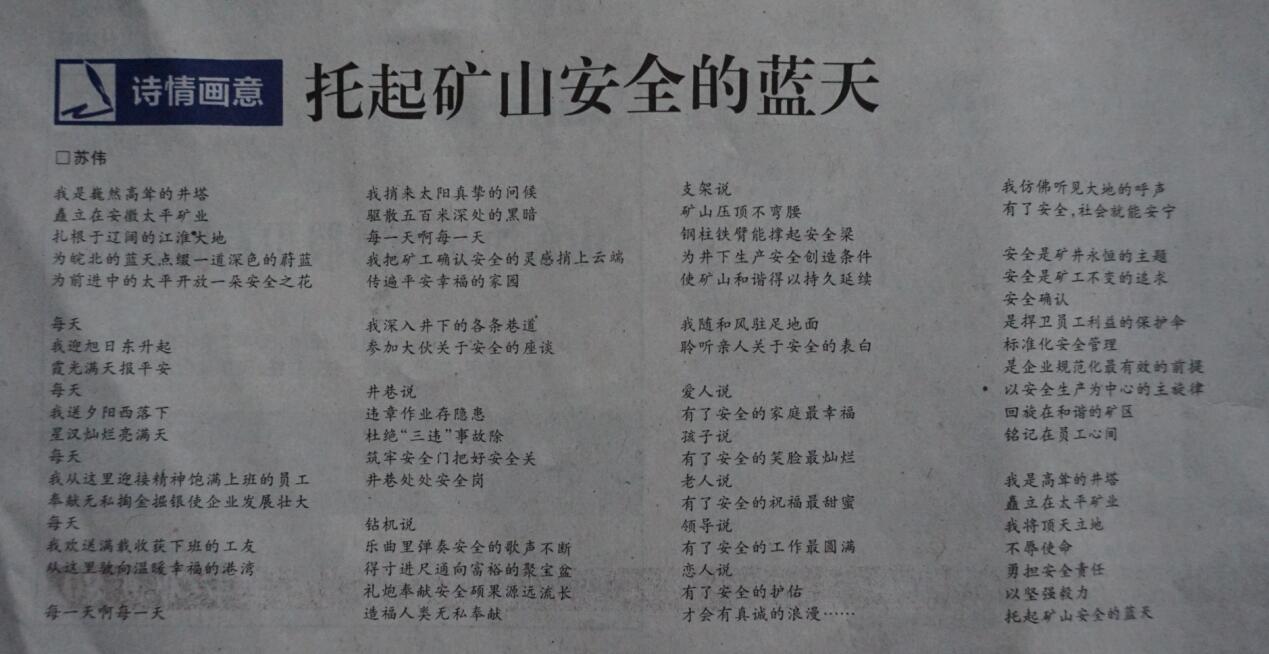 诗情画意
托起矿山安全的蓝天
□苏伟
我是巍然高耸的井塔
矗立在安徽太平矿业
扎根于辽阔的江淮大地
为皖北的蓝天点缀一道深色的蔚蓝
为前进中的太平开放一朵安全之花
每天
我迎旭日东升起
霞光满天报平安
每天
我送夕阳西落下
星汉灿烂亮满天
每天
我从这里迎接精神饱满上班的员工
奉献无私掏金掘银使企业发展壮大
每天
我欢送满载收获下班的工友
从这里驶向温暖幸福的港湾
每一天啊每一天
我捎来太阳真挚的问候
驱散五百米深处的黑暗
每一天啊每一天
我把矿工确认安全的灵感捎上云端
传遍平安幸福的家园
我深入井下的各条巷道
参加大伙关于安全的座谈
井巷说
违章作业存隐患
杜绝“三违”事故除
筑牢安全门把好安全关
井巷处处安全岗
钻机说
乐曲里弹奏安全的歌声不断
得寸进尺通向富裕的聚宝盆
礼炮奉献安全硕果源远流长
造福人类无私奉献
支架说
矿山压顶不弯腰
钢柱铁臂能撑起安全梁
为井下生产安全创造条件
使矿山和谐得以持久延续
我随和风驻足地面
聆听亲人关于安全的表白
爱人说
有了安全的家庭最幸福
孩子说
有了安全的笑脸最灿烂
老人说
有了安全的祝福最甜蜜
领导说
有了安全的工作最圆满
恋人说
有了安全的护佑
才会有真诚的浪漫……
我仿佛听见大地的呼声
有了安全,社会就能安宁
安全是矿井永恒的主题
安全是矿工不变的追求
安全确认
是捍卫员工利益的保护伞
标准化安全管理
是企业规范化最有效的前提
以安全生产为中心的主旋律
回旋在和谐的矿区
铭记在员工心间
我是高耸的井塔
矗立在太平矿业
我将顶天立地
不辱使命
勇担安全责任
以坚强毅力
托起矿山安全的蓝天